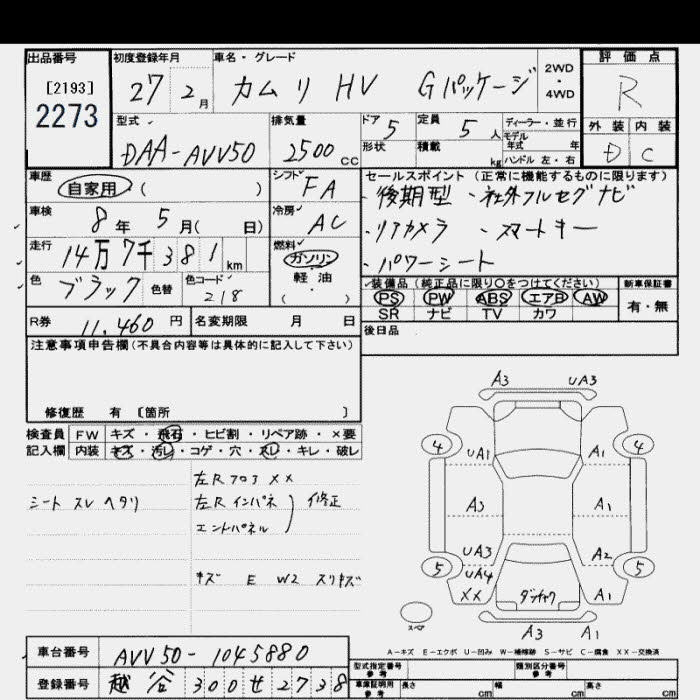 出品番号
[2193]
2273
初度登録年月
27 2月
車名・グレード
カムリ HV Gパッケージ
2WD
・
4WD
評価点
R
外装 内装
D C
型式
DAA-AVV50
排気量
2500 CC
ドア 5
形状
定員 5 人
積載 kg
ディーラー・並行
モデル
年式 年
ハンドル 左・右
車歴
自家用 ( )
シフト
FA
車検
8年 5月( 日)
冷房
AC
走行
14万 7千 381 km
燃料
ガソリン
軽油
( )
色
ブラック
色替
色コード
218
R券 11.460 円
名変期限 月 日
セールスポイント (正常に機能するものに限ります)
・後期型 ・社外フルセグナビ
・リアカメラ ・スマートキー
・パワーシート
装備品 (純正品に限り○をつけてください)
PS PW ABS エアB AW
SR ナビ TV カワ
新車保証書
有・無
後日品
注意事項申告欄(不具合内容等は具体的に記入して下さい)
修復歴 有 [箇所 ]
検査員
記入欄
FW キズ・飛石・ヒビ割・リペア跡・×要
内装 キズ・汚レ・コゲ・穴・スレ・キレ・破レ
シート スレ ヘタリ
左Rフロア XX
左R インパネ
エンドパネル
修正
キズ E W2 スリキズ
A3 UA3
4 4
UA1 A1
A3 A1
UA3 A2
5 5
UA4
XX
A1
A3 A1
スペア
A-キズ E-エクボ U-凹み W-補修跡 S-サビ C-腐食 XX-交換済
車台番号 AVV50-1045880
登録番号 越谷 300 せ 2738
型式指定番号
参考
類別区分番号
参考
車庫証明用
参考
長さ cm
幅 cm
高さ cm